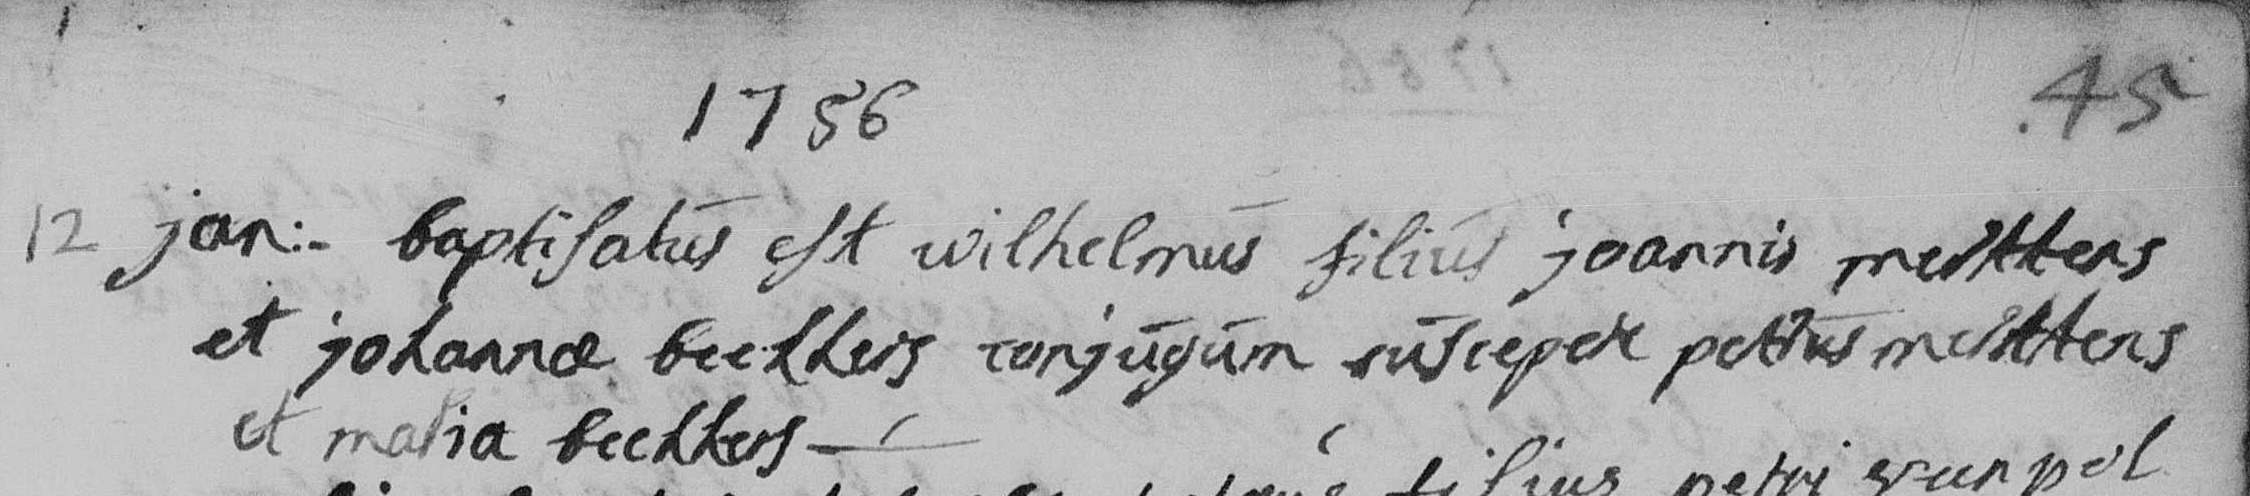 1756
45
12 jan:- baptisatus est wilhelmus filius joannis merttens
et johannæ beckkers conjugum suscepere petrus merttens
et maria beckkers
filius petri van pol